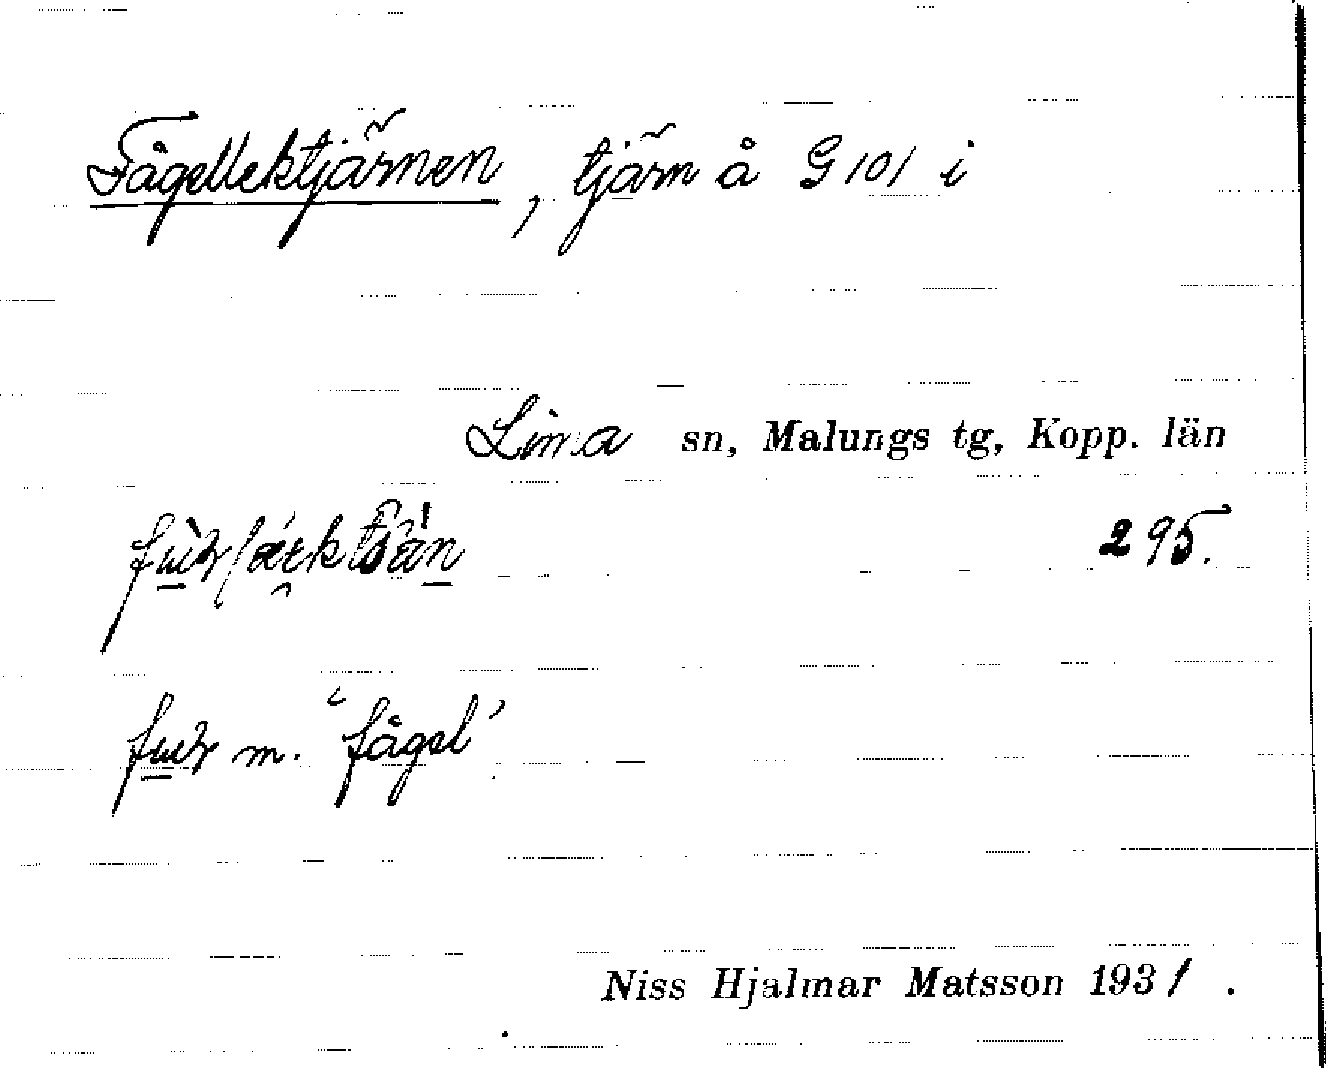 Fågellektjärnen, tjärn å G 101 i
Lima sn, Malungs tg, Kopp. län
295.
m. ‘fågel’
Niss Hjalmar Matsson 1931.